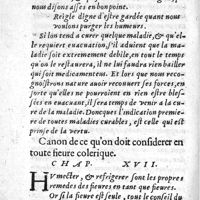 nous disons assés en bon point.
Reigle digne d'estre gardée quant nous
voulons purger les humeurs.
Si lon tend a curer quelque maladie, & qu'el-
le requiert euacuation, s'il aduient que la ma-
ladie soit extremement debile, en tout le temps
qu'on le restaurera, il luy faut bailler viandes
qui soiẽt medicamenteus. Et lors que nous reco-
gnoistrons nature auoir recouuert ses forces, en
sorte qu'elles ne pourroient en rien estre bles-
sées en euacuant, il sera temps de venir a la cu-
re de la maladie. Doncques l'indication premie-
re de toutes maladies curables, est celle qui est
prinse de la vertu.
Canon de ce qu'on doit considerer en
toute fieure colerique.
CHAP. XVII.
HVmecter, & refrigerer sont les propres
remedes des fieures en tant que fieures.
Or si la fieure est seule, tout le conseil du